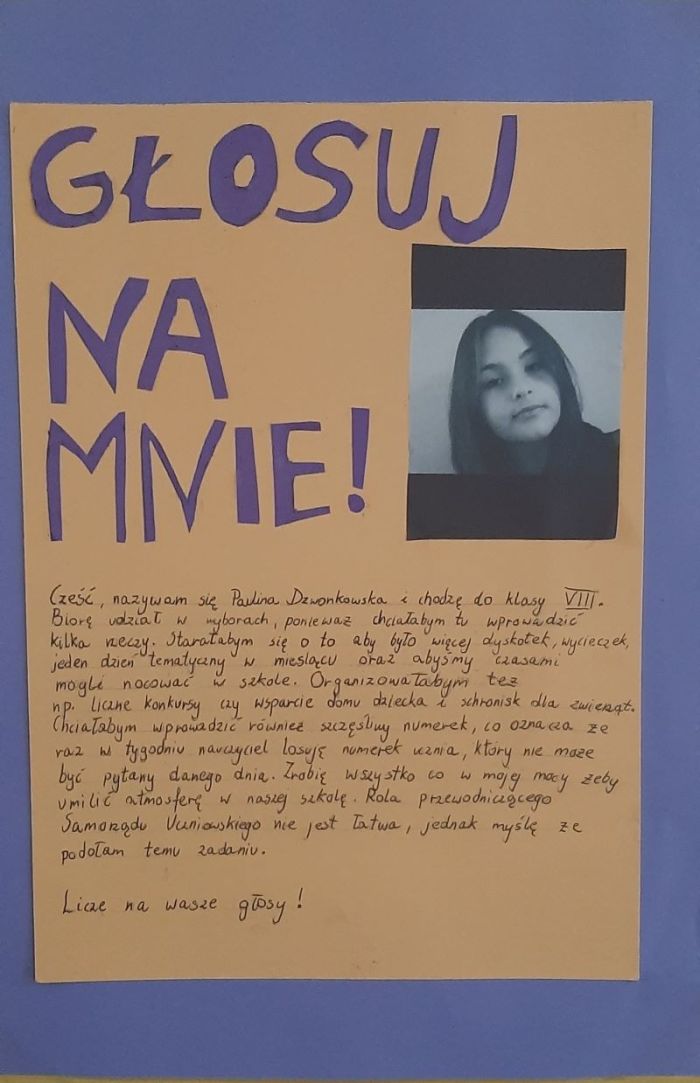 GŁOSUJ
NA
MNIE!
Cześć, nazywam się Paulina Dzwonkowska i chodzę do klasy VIII.
Biorę udział w wyborach, ponieważ chciałabym tu wprowadzić
kilka rzeczy. Starałabym się o to aby było więcej dyskotek, wycieczek,
jeden dzień tematyczny w miesiącu oraz abyśmy czasami
mogli nocować w szkole. Organizowałabym też
np. liczne konkursy czy wsparcie domu dziecka i schronisk dla zwierząt.
Chciałabym wprowadzić również szczęśliwy numerek, co oznacza że
raz w tygodniu nauczyciel losuję numerek ucznia, który nie może
być pytany danego dnia. Zrobię wszystko co w mojej mocy żeby
umilić atmosferę w naszej szkole. Rola przewodniczącego
Samorządu Uczniowskiego nie jest łatwa, jednak myślę że
podołam temu zadaniu.
Liczę na wasze głosy!